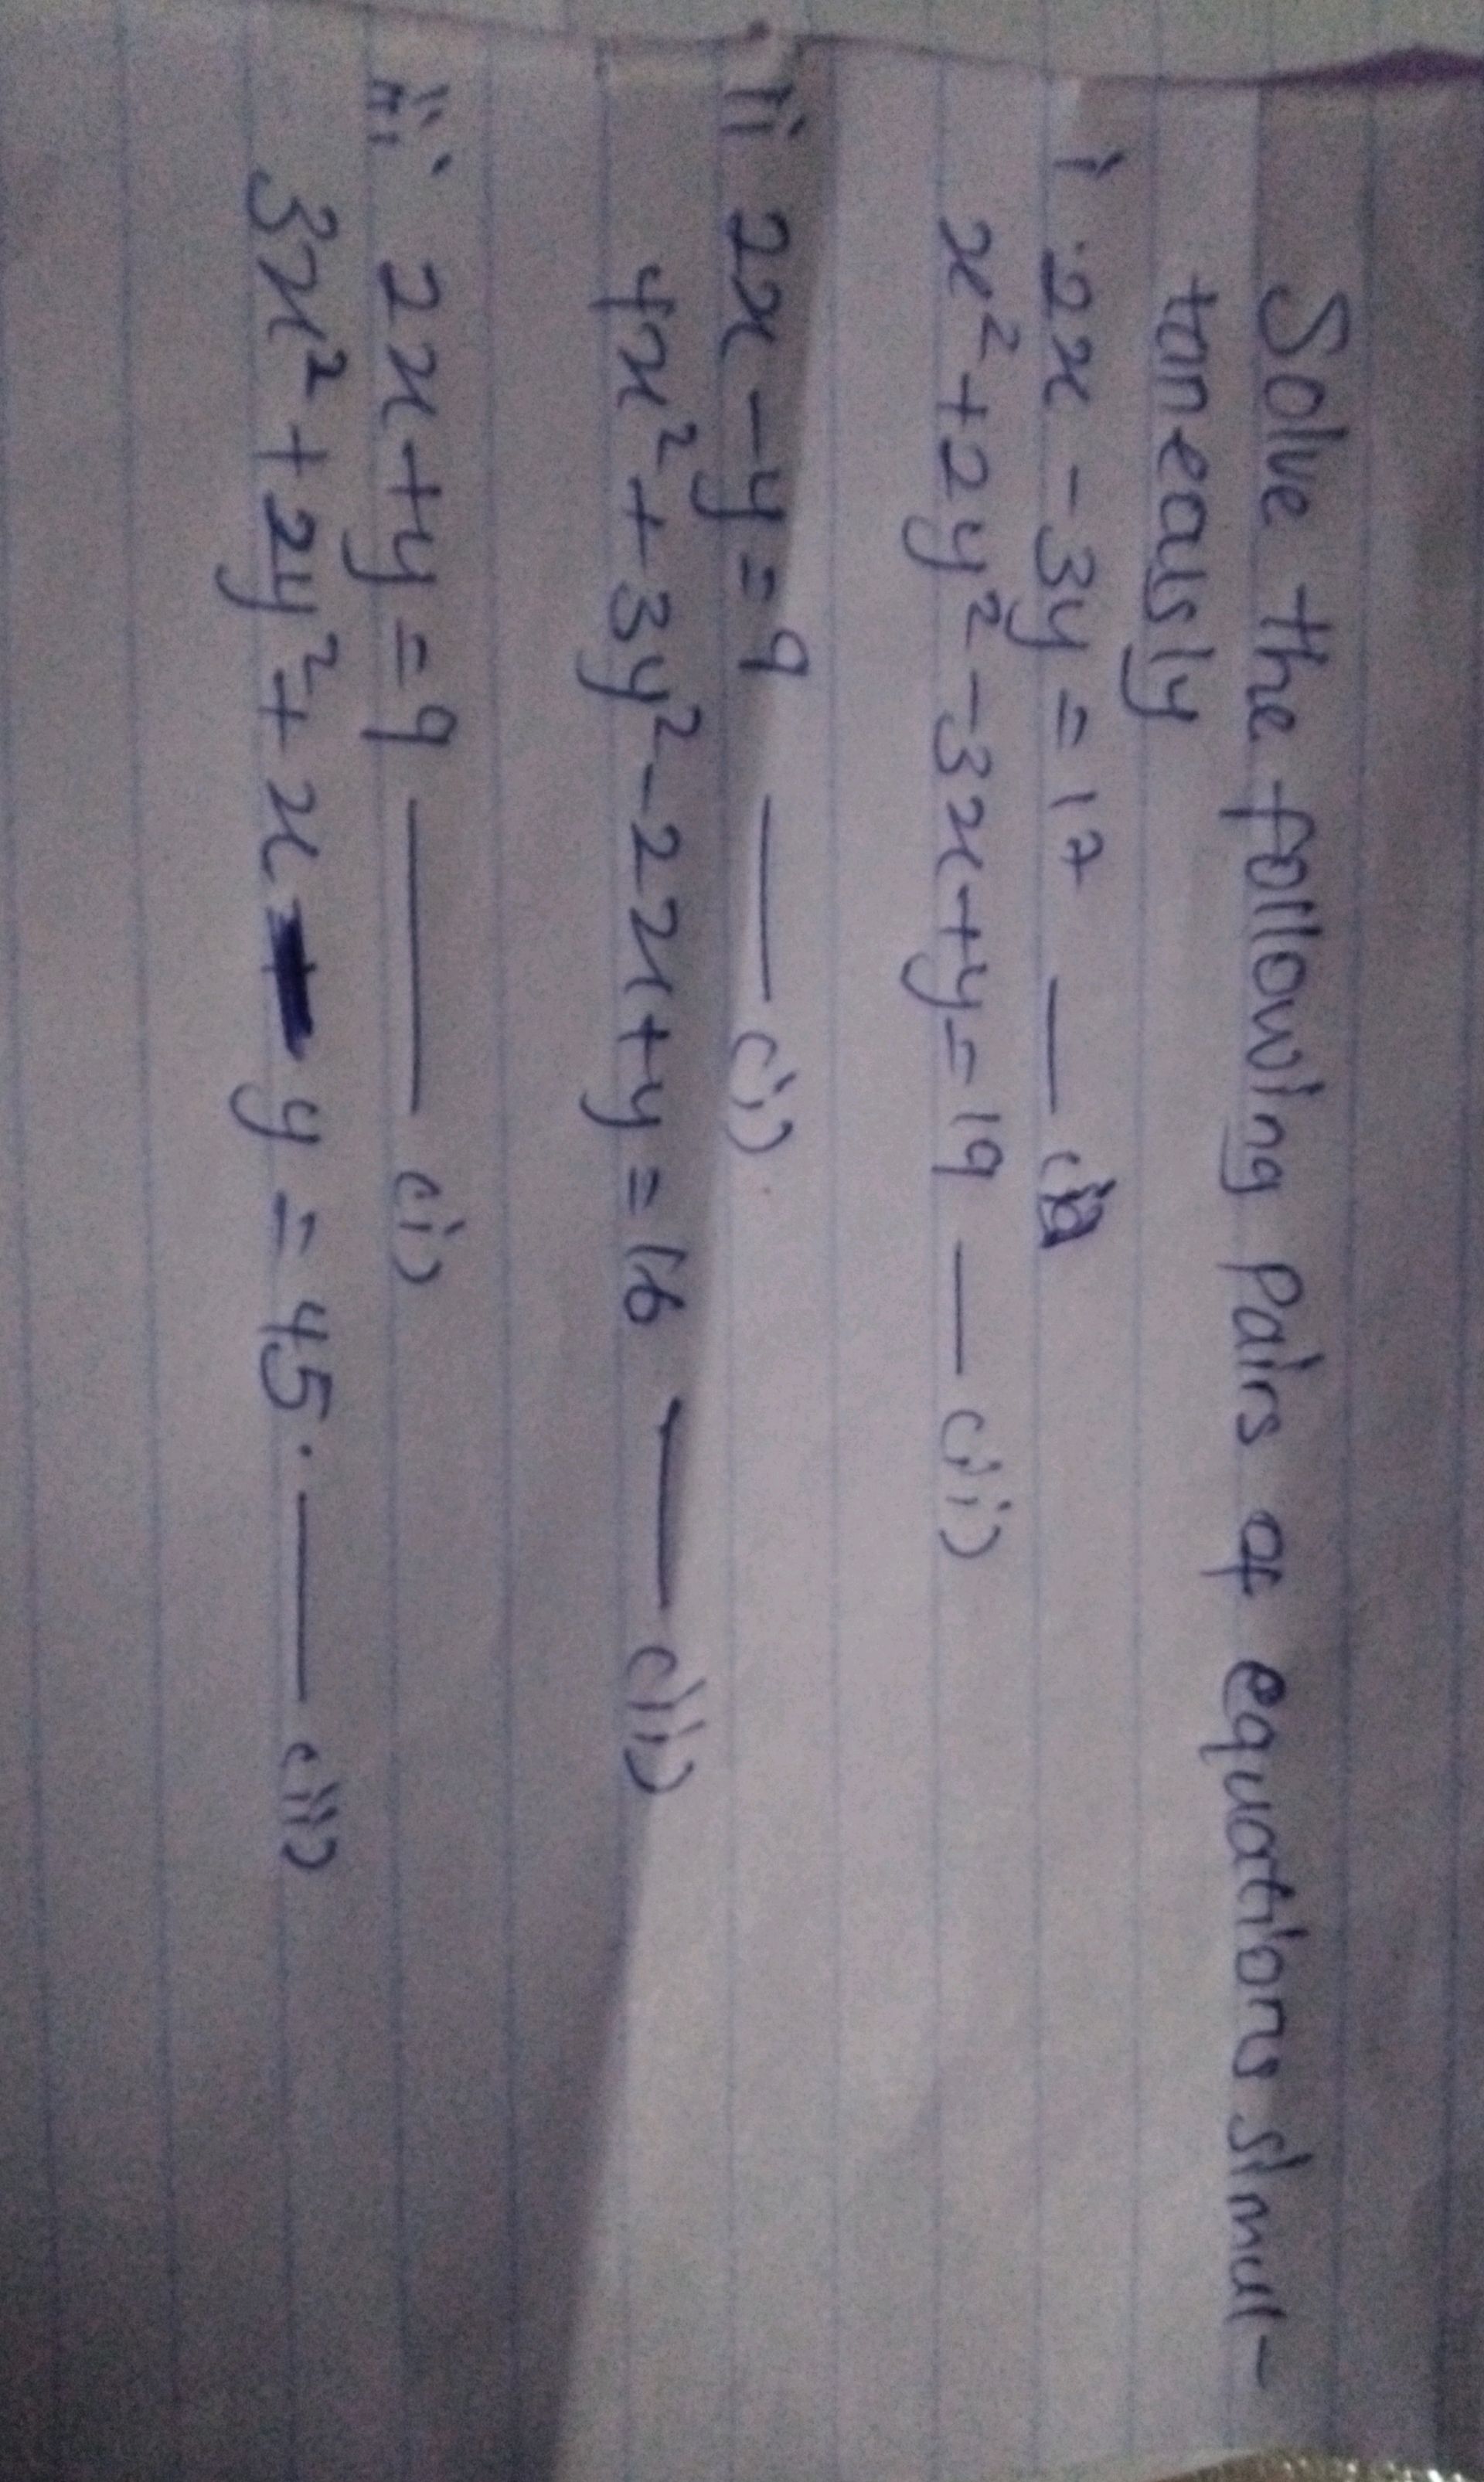 Solve the following Pairs of equations simul-
taneously
i 2x - 3y = 17 — (i)
x² + 2y² - 3x + y = 19 — (ii)
ii 2x - y = 9 — (i)
4x² + 3y² - 2x + y = 16 — (ii)
iii 2x + y = 9 — (i)
3x² + 2y² + x - y = 45. — (ii)